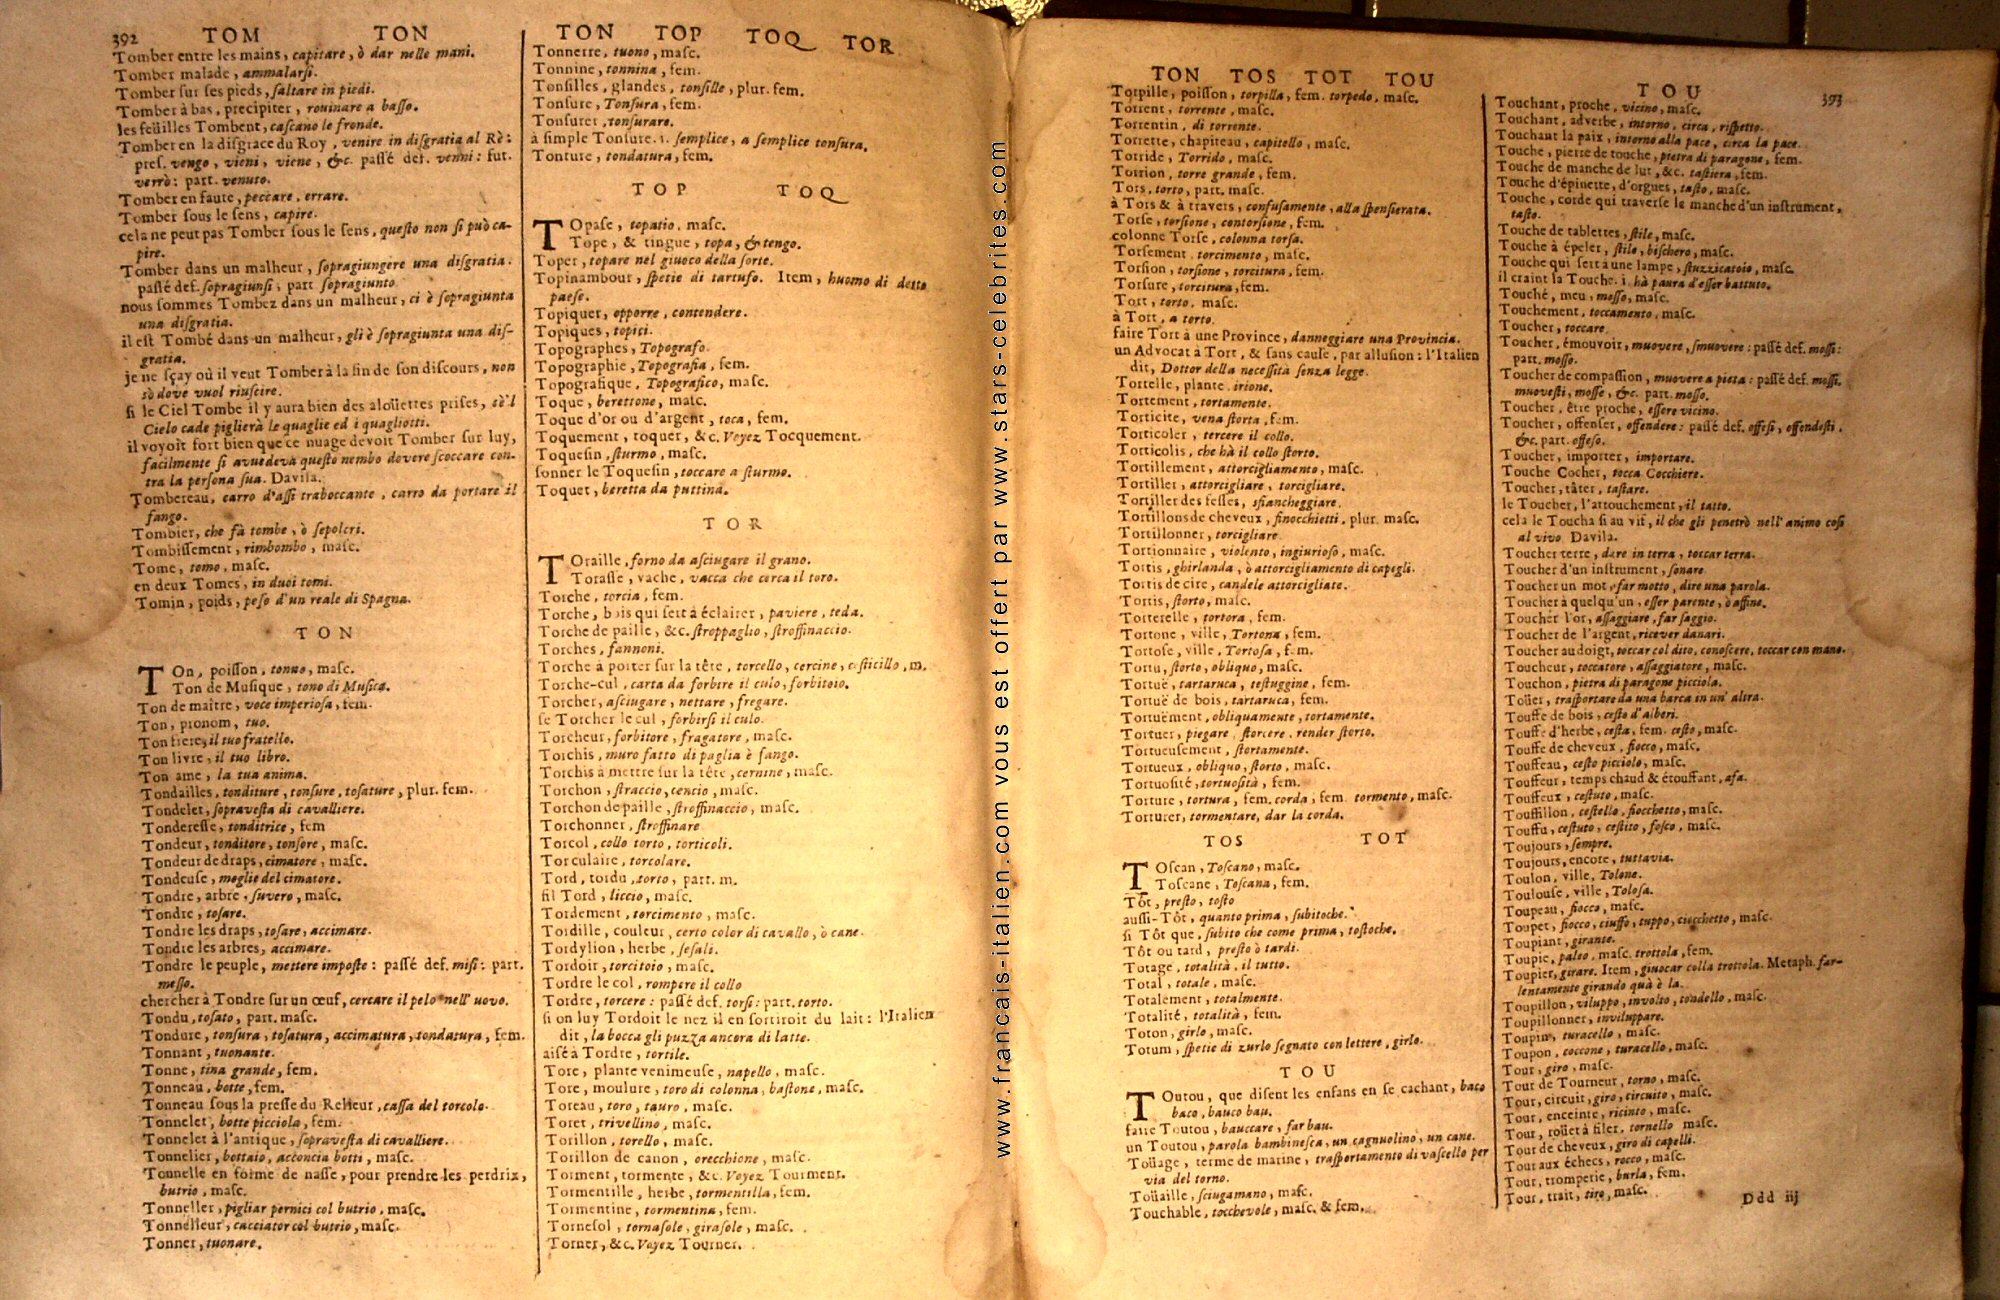 392 TOM TON
Tomber entre les mains, capitare, ò dar nelle mani.
Tomber malade, ammalarsi.
Tomber sur ses pieds, saltare in piedi.
Tomber à bas, precipiter, rovinare a basso.
les feüilles Tombent, cascano le fronde.
Tomber en la disgrace du Roy, venire in disgratia al Rè:
pres. vengo, vieni, viene, &c. passé def. venni: fut.
verrò: part. venuto.
Tomber en faute, peccare, errare.
Tomber sous le sens, capire.
cela ne peut pas Tomber sous le sens, questo non si può ca-
pire.
Tomber dans un malheur, sopragiungere una disgratia:
passé def. sopragiunsi, part sopragiunto
nous sommes Tombez dans un malheur, ci è sopragiunta
una disgratia.
il est Tombé dans un malheur, gli è sopragiunta una dis-
gratia.
je ne sçay où il veut Tomber à la fin de son discours, non
sò dove vuol riuscire.
si le Ciel Tombe il y aura bien des aloüettes prises, se'l
Cielo cade piglierà le quaglie ed i quagliotti.
il voyoit fort bien que ce nuage devoit Tomber sur luy,
facilmente si avuedeva questo nembo dovere scoccare con-
tra la persona sua. Davila.
Tombereau, carro d'assi traboccante, carro da portare il
fango.
Tombier, che fà tombe, ò sepolcri.
Tombissement, rimbombo, masc.
Tome, tomo, masc.
en deux Tomes, in duoi tomi.
Tomin, poids, peso d'un reale di Spagna.
TON
TOn, poisson, tonno, masc.
Ton de Musique, tono di Musica.
Ton de maître, voce imperiosa, fem.
Ton, pronom, tuo.
Ton frere, il tuo fratello.
Ton livre, il tuo libro.
Ton ame, la tua anima.
Tondailles, tonditure, tonsure, tosature, plur. fem.
Tondelet, sopravesta di cavalliere.
Tonderesse, tonditrice, fem
Tondeur, tonditore, tonsore, masc.
Tondeur de draps, cimatore, masc.
Tondeuse, moglie del cimatore.
Tondre, arbre, suvero, masc.
Tondre, tosare.
Tondre les draps, tosare, accimare.
Tondre les arbres, accimare.
Tondre le peuple, mettere imposte: passé def. misi: part.
messo.
chercher à Tondre sur un œuf, cercare il pelo nell' uovo.
Tondu, tosato, part. masc.
Tondure, tonsura, tosatura, accimatura, tondatura, fem.
Tonnant, tuonante.
Tonne, tina grande, fem.
Tonneau, botte, fem.
Tonneau sous la presse du Relieur, cassa del torcolo.
Tonnelet, botte picciola, fem.
Tonnelet à l'antique, sopravesta di cavalliere.
Tonnelier, bottaio, acconcia botti, masc.
Tonnelle en forme de nasse, pour prendre les perdrix,
butrio, masc.
Tonneller, pigliar pernici col butrio, masc.
Tonnelleur, cacciator col butrio, masc.
Tonner, tuonare.
TON TOP TOQ TOR
Tonnerre, tuono, masc.
Tonnine, tonnina, fem.
Tonsilles, glandes, tonsille, plur. fem.
Tonsure, Tonsura, fem.
Tonsurer, tonsurare.
à simple Tonsure. i. semplice, a semplice tonsura.
Tonture, tondatura, fem.
TOP TOQ
TOpase, topatio, masc.
Tope, & tingue, topa, & tengo.
Toper, topare nel giuoco della sorte.
Topinambour, spetie di tartufo. Item, huomo di detto
paese.
Topiquer, opporre, contendere.
Topiques, topici.
Topographes, Topografo.
Topographie, Topografia, fem.
Topografique, Topografico, masc.
Toque, berettone, masc.
Toque d'or ou d'argent, toca, fem.
Toquement, toquer, &c. Voyez Tocquement.
Toquesin, sturmo, masc.
sonner le Toquesin, toccare a sturmo.
Toquet, beretta da puttina.
TOR
TOraille, forno da asciugare il grano.
Torasse, vache, vacca che cerca il toro.
Torche, torcia, fem.
Torche, bois qui sert à éclairer, paviere, teda.
Torche de paille, &c. stroppaglio, stroffinaccio.
Torches, fannoni.
Torche à porter sur la tête, torcello, cercine, casticillo, m.
Torche-cul, carta da forbire il culo, forbitoio.
Torcher, asciugare, nettare, fregare.
se Torcher le cul, forbirsi il culo.
Torcheur, forbitore, fragatore, masc.
Torchis, muro fatto di paglia è fango.
Torchis à mettre sur la tête, cernine, masc.
Torchon, straccio, cencio, masc.
Torchon de paille, stroffinaccio, masc.
Torchonner, stroffinare
Torcol, collo torto, torticoli.
Torculaire, torcolare.
Tord, tordu, torto, part. m.
fil Tord, liccio, masc.
Tordement, torcimento, masc.
Tordille, couleur, certo color di cavallo, ò cane.
Tordylion, herbe, sesali.
Tordoir, torcitoio, masc.
Tordre le col, rompere il collo
Tordre, torcere: passé def. torsi: part. torto.
si on luy Tordoit le nez il en sortiroit du lait: l'Italien
dit, la bocca gli puzza ancora di latte.
aisé à Tordre, tortile.
Tore, plante venimeuse, napello, masc.
Tore, moulure, toro di colonna, bastone, masc.
Toreau, toro, tauro, masc.
Toret, trivellino, masc.
Torillon, torello, masc.
Torillon de canon, orecchione, masc.
Torment, tormente, &c. Voyez Tourment.
Tormentille, herbe, tormentilla, fem.
Tormentine, tormentina, fem.
Tornesol, tornasole, girasole, masc.
Torner, &c. Voyez Tourner.
www.francais-italien.com vous est offert par www.stars-celebrites.com
TON TOS TOT TOU
Torpille, poisson, torpilla, fem. torpedo, masc.
Torrent, torrente, masc.
Torrentin, di torrente.
Torrette, chapiteau, capitello, masc.
Torride, Torrido, masc.
Torrion, torre grande, fem.
Tors, torto, part. masc.
à Tors & à travers, confusamente, alla spensierata.
Torse, torsione, contorsione, fem.
colonne Torse, colonna torsa.
Torsement, torcimento, masc.
Torsion, torsione, torcitura, fem.
Torsure, torcitura, fem.
Tort, torto, masc.
à Tort, a torto.
faire Tort à une Province, danneggiare una Provincia.
un Advocat à Tort, & sans cause, par allusion: l'Italien
dit, Dottor della necessità senza legge.
Tortelle, plante, irione.
Tortement, tortamente.
Torticite, vena storta, fem.
Torticoler, tercere il collo.
Torticolis, che hà il collo storto.
Tortillement, attorcigliamento, masc.
Tortiller, attorcigliare, torcigliare.
Tortiller des fesses, sfiancheggiare.
Tortillons de cheveux, finocchietti, plur. masc.
Tortillonner, torcigliare
Tortionnaire, violento, ingiurioso, masc.
Tortis, ghirlanda, ò attorcigliamento di capegli.
Tortis de cire, candele attorcigliate.
Tortis, storto, masc.
Torterelle, tortora, fem.
Tortone, ville, Tortona, fem.
Tortose, ville, Tortosa, fem.
Tortu, storto, obliquo, masc.
Tortuë, tartaruca, testuggine, fem.
Tortuë de bois, tartaruca, fem.
Tortuëment, obliquamente, tortamente.
Tortuer, piegare, storcere, render storto.
Tortueusement, stortamente.
Tortueux, obliquo, storto, masc.
Tortuosité, tortuosità, fem.
Torture, tortura, fem. corda, fem. tormento, masc.
Torturer, tormentare, dar la corda.
TOS TOT
TOscan, Toscano, masc.
Toscane, Toscana, fem.
Tôt, presto, tosto
aussi-Tôt, quanto prima, subitoche.
si Tôt que, subito che come prima, tostoche.
Tôt ou tard, presto ò tardi.
Totage, totalità, il tutto.
Total, totale, masc.
Totalement, totalmente.
Totalité, totalità, fem.
Toton, girlo, masc.
Totum, spetie di zurlo segnato con lettere, girlo.
TOU
TOutou, que disent les enfans en se cachant, baco
baco, bauco bau.
faire Toutou, bauccare, far bau.
un Toutou, parola bambinesca, un cagnuolino, un cane.
Toüage, terme de marine, trasportamento di vascello per
via del torno.
Toüaille, sciugamano, masc.
Touchable, tocchevole, masc. & fem.
TOU 393
Touchant, proche, vicino, masc.
Touchant, adverbe, intorno, circa, rispetto.
Touchant la paix, intorno alla pace, circa la pace.
Touche, pierre de touche, pietra di paragone, fem.
Touche de manche de lut, &c. tastiera, fem.
Touche d'épinette, d'orgues, tasto, masc.
Touche, corde qui traverse le manche d'un instrument,
tasto.
Touche de tablettes, stile, masc.
Touche à épeler, stile, bischero, masc.
Touche qui sert à une lampe, stuzzicatoio, masc.
il craint la Touche. i. hà paura d'esser battuto.
Touché, meu, mosso, masc.
Touchement, toccamento, masc.
Toucher, toccare
Toucher, émouvoir, muovere, smuovere: passé def. mossi:
part. mosso.
Toucher de compassion, muovere a pieta: passé def. mossi,
muovesti, mosse, &c. part. mosso.
Toucher, être proche, essere vicino.
Toucher, offenser, offendere: passé def. offesi, offendesti,
&c. part. offeso.
Toucher, importer, importare.
Touche Cocher, tocca Cocchiere.
Toucher, tâter, tastare.
le Toucher, l'attouchement, il tatto.
cela le Toucha si au vif, il che gli penetrò nell' animo così
al vivo. Davila.
Toucher terre, dare in terra, toccar terra.
Toucher d'un instrument, sonare.
Toucher un mot, far motto, dire una parola.
Toucher à quelqu'un, esser parente, ò affine.
Toucher l'or, assaggiare, far saggio.
Toucher de l'argent, ricever danari.
Toucher au doigt, toccar col dito, conoscere, toccar con mano.
Toucheur, toccatore, assaggiatore, masc.
Touchon, pietra di paragone picciola.
Toüer, trasportare da una barca in un' altra.
Touffe de bois, cesto d'alberi.
Touffe d'herbe, cesta, fem. cesto, masc.
Touffe de cheveux, fiocco, masc.
Touffeau, cesto picciolo, masc.
Touffeur, temps chaud & étouffant, afa.
Touffeux, cestuto, masc.
Touffillon, cestello, fiocchetto, masc.
Touffu, cestuto, cestito, fosco, masc.
Toujours, sempre.
Toujours, encore, tuttavia.
Toulon, ville, Tolone.
Toulouse, ville, Tolosa.
Toupeau, fiocco, masc.
Toupet, fiocco, ciuffo, tuppo, ciocchetto, masc.
Toupiant, girante.
Toupie, paleo, masc. trottola, fem.
Toupier, girare. Item, giuocar colla trottola. Metaph. far-
lentamente girando quà è la.
Toupillon, viluppo, involto, tondello, masc.
Toupillonner, inviluppare.
Toupin, turacello, masc.
Toupon, coccone, turacello, masc.
Tour, giro, masc.
Tour de Tourneur, torno, masc.
Tour, circuit, giro, circuito, masc.
Tour, enceinte, ricinto, masc.
Tour, roüet à filer, tornello masc.
Tour de cheveux, giro di capelli.
Tour aux échecs, rocco, masc.
Tour, tromperie, burla, fem.
Tour, trait, tiro, masc.
Ddd iij